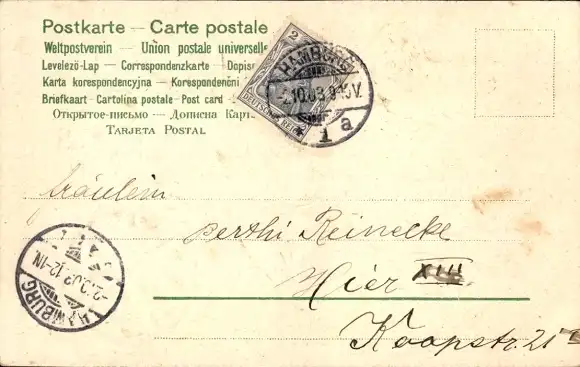 Postkarte — Carte postale
Weltpostverein — Union postale universelle
Levelező-Lap — Correspondenzkarte — Dopis
Karta korespondencyjna — Korespondenční
Briefkaart - Cartolina postale - Post card
Открытое письмо — Дописна Карт
Tarjeta Postal
2
DEUTSCHES REICH
HAMBURG
-2.10.03.9-10V.
* 1 a
Fräulein
Berthi Reinecke
Hier XIII
Koopstr. 21
HAMBURG
12-1N.